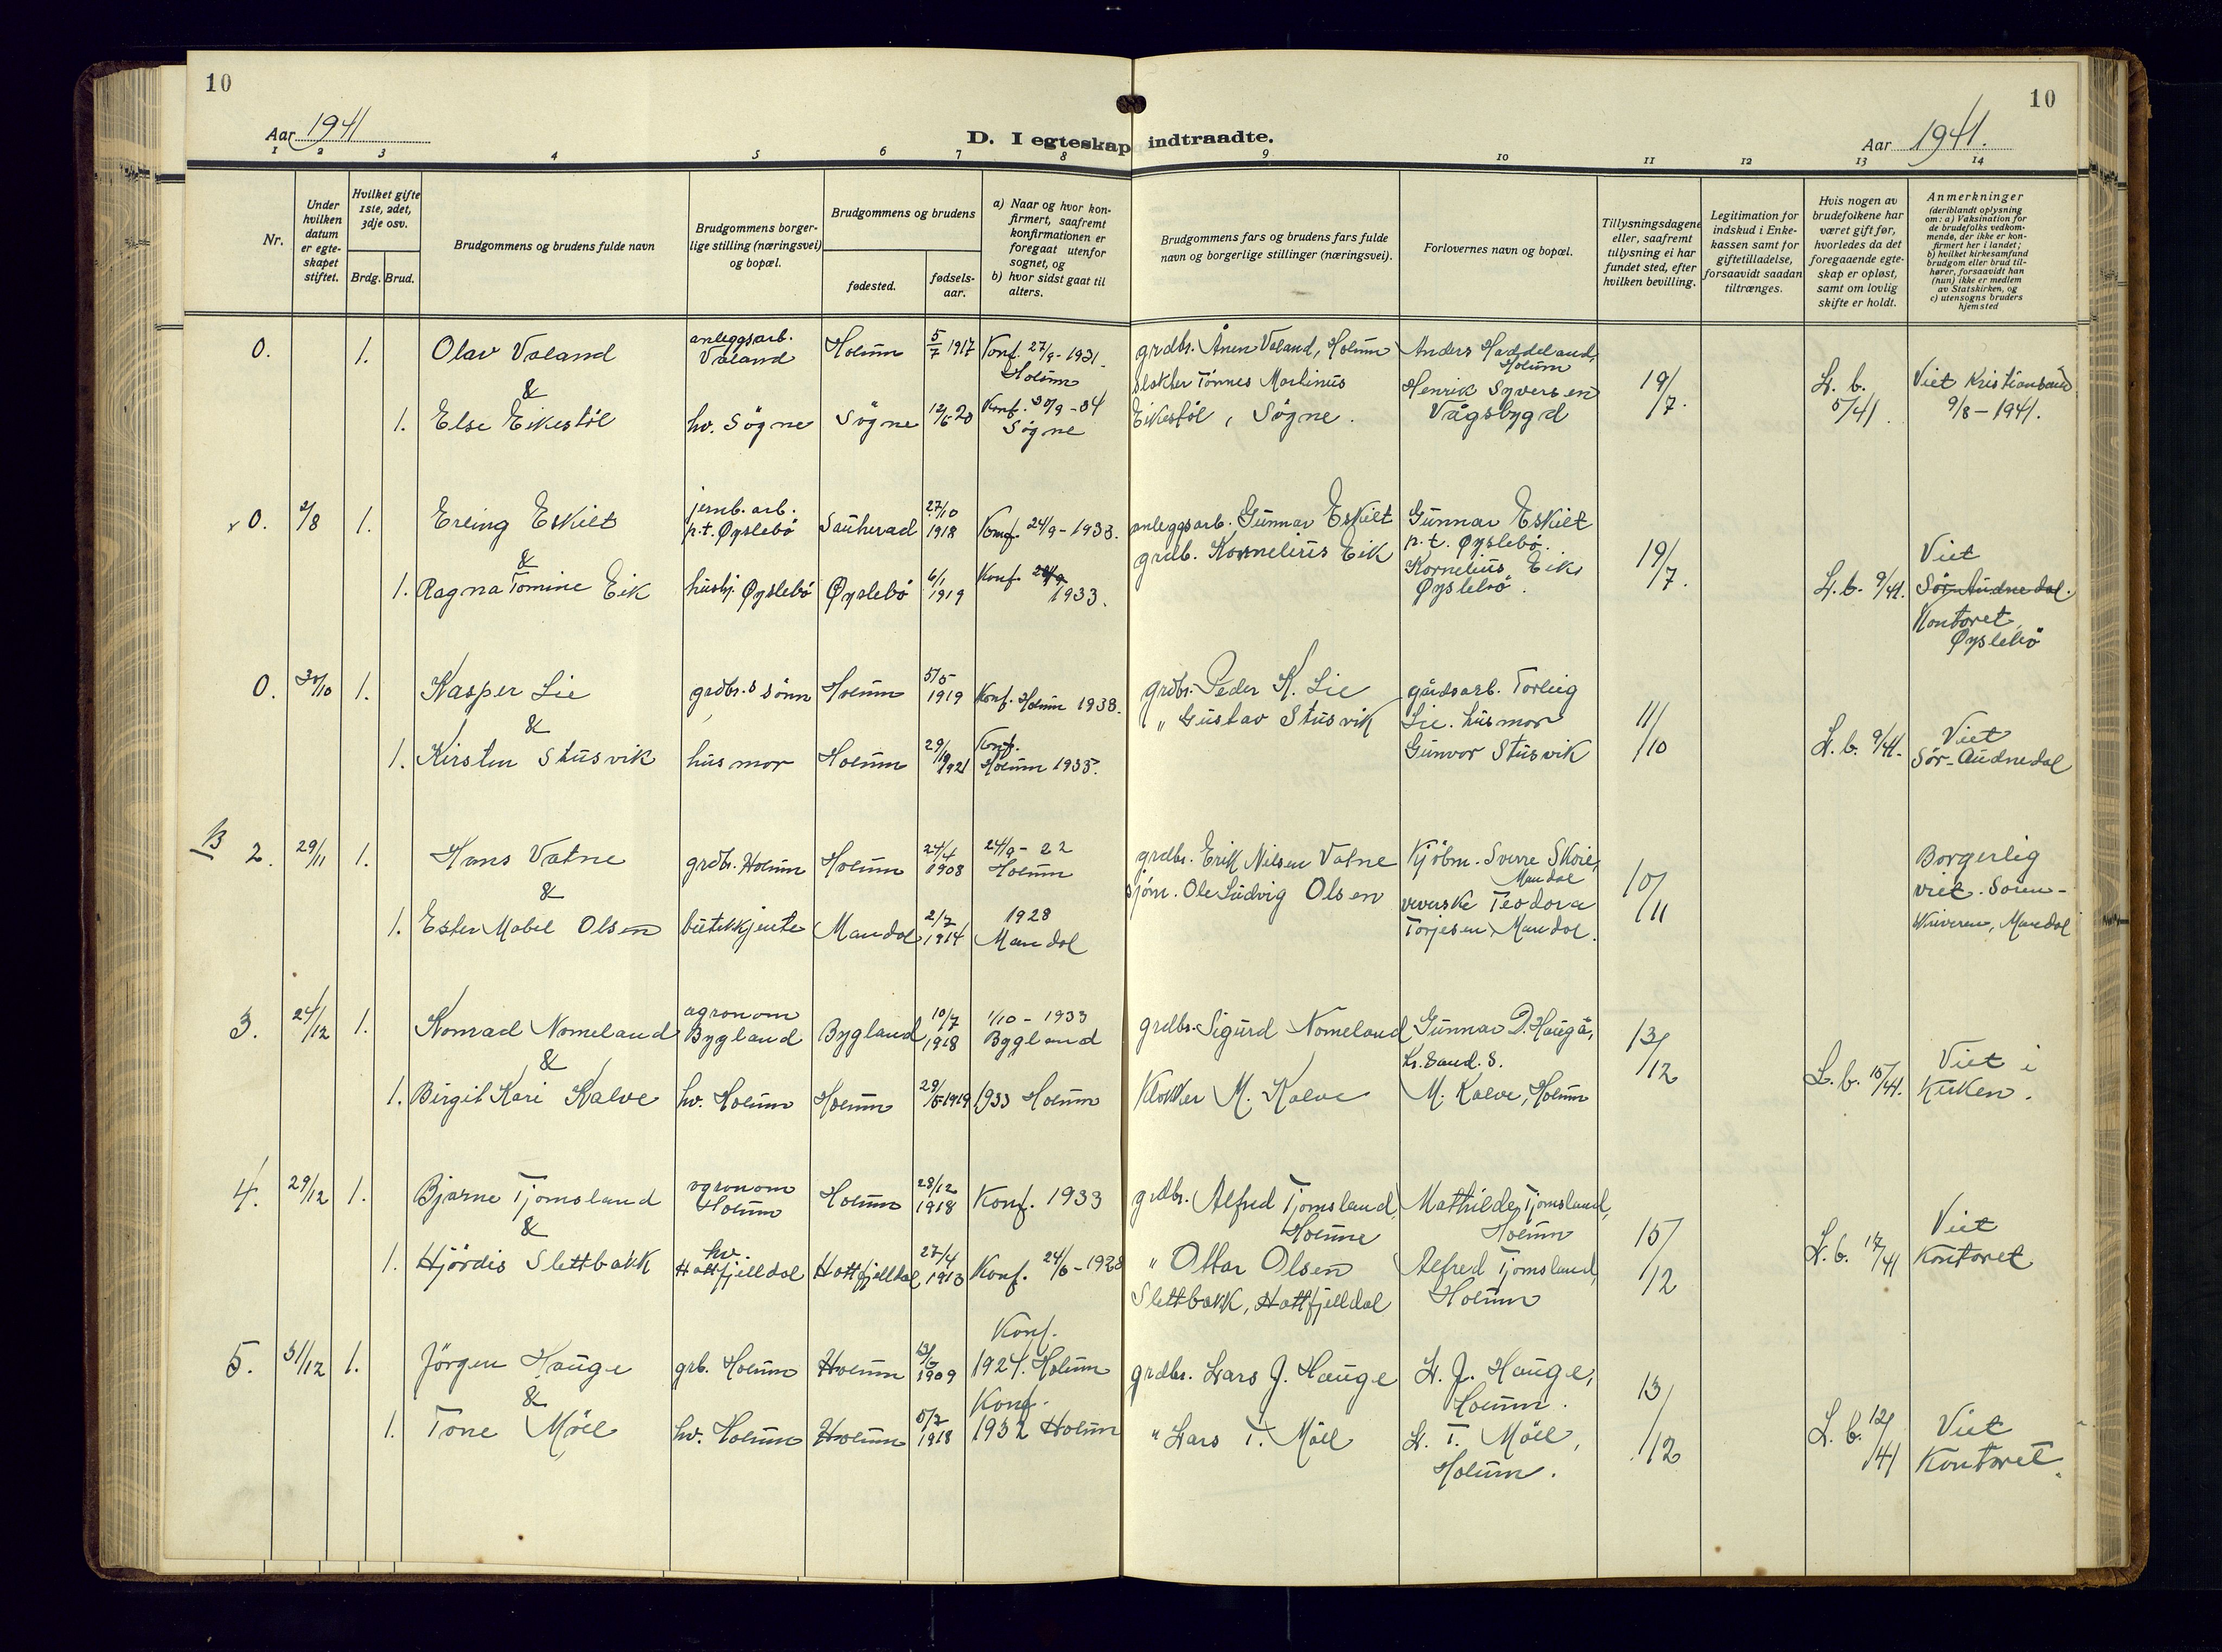 10
10
Aar 1941
D. I egteskap indtraadte.
Aar 1941.
1 2 3 4 5 6 7 8 9 10 11 12 13 14
Nr.
Under hvilken datum er egte-skapet stiftet.
Hvilket gifte 1ste, 2det, 3dje osv.
Brdg. Brud.
Brudgommens og brudens fulde navn
Brudgommens borger-lige stilling (næringsvei) og bopæl.
Brudgommens og brudens
fødested.
fødsels-aar.
a) Naar og hvor kon-firmert, saafremt konfirmationen er foregaat utenfor sognet, og
b) hvor sidst gaat til alters.
Brudgommens fars og brudens fars fulde navn og borgerlige stillinger (næringsvei).
Forlovernes navn og bopæl.
Tillysningsdagene eller, saafremt tillysning ei har fundet sted, efter hvilken bevilling.
Legitimation for indskud i Enke-kassen samt for giftetilladelse, forsaavidt saadan tiltrænges.
Hvis nogen av brudefolkene har været gift før, hvorledes da det foregaaende egte-skap er opløst, samt om lovlig skifte er holdt.
Anmerkninger
(deriblandt oplysning om: a) Vaksination for de brudefolks vedkom-mende, der ikke er kon-firmert her i landet; b) hvilket kirkesamfund brudgom eller brud til-hører, forsaavidt han (hun) ikke er medlem av Statskirken, og c) utensogns bruders hjemsted
0. 1. Olav Valand anleggsarb. Valand Holum 5/7 1917 Konf. 27/9-1931. Holum
grdbr. Ånen Valand, Holum Anders Haddeland, Holum 19/7. L. b. 5/41. Viet Kristiansand 9/8-1941.
&
1. Else Eikestöl hv. Sögne Sögne 12/6 20 Konf. 30/9-34 Sögne
slakter Tönnes Martinus Eikestöl, Sögne. Henrik Syversen Vågsbygd
x 0. 2/8 1. Erling Eskilt jernb. arb. p.t. Øyslebö Sauherad 27/10 1918 Konf. 24/9-1933.
anleggsarb. Gunnar Eskilt Gunnar Eskilt p.t. Øyslebö. 19/7. L. b. 9/41. Viet Sør-Audnedal. Kontoret, Øyslebö
&
1. Ragna Tomine Eik hushj. Øyslebö Øyslebö 6/1 1919 Konf. 24/9 1933.
grdb. Kornelius Eik Kornelius Eik, Øyslebö.
0. 30/10 1. Kasper Lie grdbr.s sönn Holum 5/5 1919 Konf. Holum 1933.
grdbr. Peder K. Lie gårdsarb. Torleig Lie. 11/10 L. b. 9/41. Viet Sör-Audnedal
&
1. Kirsten Stusvik husmor Holum 29/10 1921 Konf. Holum 1935.
" Gustav Stusvik husmor Gunvor Stusvik
B 2. 29/11 1. Hans Vatne grdbr. Holum Holum 24/4 1908 24/9-22 Holum
grdbr. Erik Nilsen Vatne Kjöbm. Sverre Skoie, Mandal 10/11 Borgerlig viet. Soren-skriveren, Mandal
&
1. Ester Mabel Olsen butikkjente Mandal 2/7 1914 1928 Mandal
sjöm. Ole Ludvig Olsen veverske Teodora Torjesen, Mandal.
3. 24/12 1. Konrad Nomeland agronom Bygland Bygland 10/7 1918 1/10-1933 Bygland
grdbr. Sigurd Nomeland Gunnar D. Haugå, Kr.sand. S. 13/12 L. b. 15/41. Viet i Kirken.
&
1. Birgit Kari Kalve hv. Holum Holum 29/5-1919 1933 Holum
Klokker M. Kalve M. Kalve, Holum
4. 29/12 1. Bjarne Tjomsland agronom Holum Holum 28/12 1918 Konf. 1933
grdbr. Alfred Tjomsland, Holum Mathilde Tjomsland, Holum 15/12 L. b. 17/41 Viet Kontoret
&
1. Hjördis Slettbakk hv. Hattfjelldal Hattfjelldal 27/4 1913 Konf. 24/6-1928
" Ottar Olsen Slettbakk, Hattfjelldal Alfred Tjomsland, Holum
5. 31/12 1. Jörgen Hauge grb. Holum Holum 1909 Konf. 1924. Holum
grdbr. Lars J. Hauge L. J. Hauge, Holum. 13/12 L. b. 12/41 Viet Kontoret.
&
1. Tone Möll hv. Holum Holum 5/7 1918 Konf. 1932 Holum
" Lars T. Möll L. T. Möll, Holum.